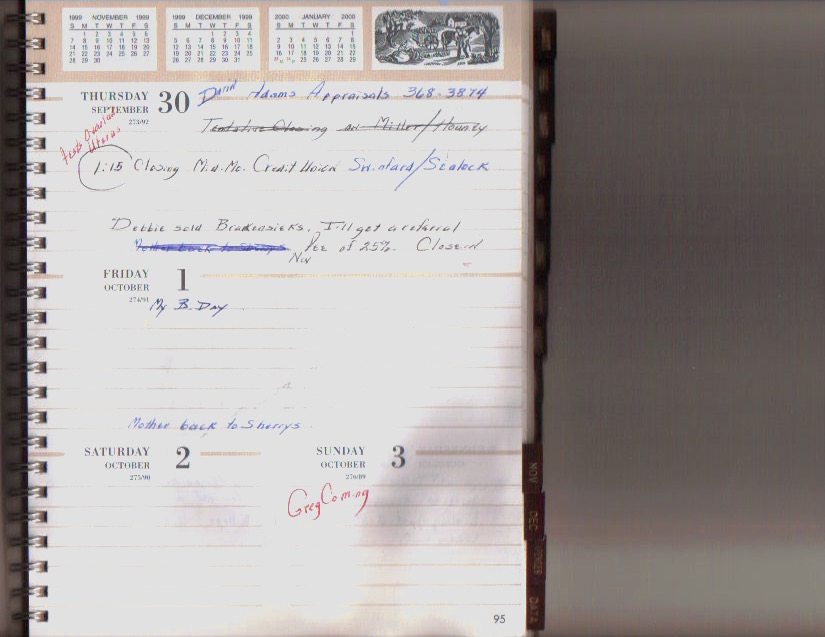 1999 NOVEMBER 1999
S M T W T F S
1 2 3 4 5 6
7 8 9 10 11 12 13
14 15 16 17 18 19 20
21 22 23 24 25 26 27
28 29 30
1999 DECEMBER 1999
S M T W T F S
1 2 3 4
5 6 7 8 9 10 11
12 13 14 15 16 17 18
19 20 21 22 23 24 25
26 27 28 29 30 31
2000 JANUARY 2000
S M T W T F S
1
2 3 4 5 6 7 8
9 10 11 12 13 14 15
16 17 18 19 20 21 22
23 24 25 26 27 28 29
30 31
THURSDAY 30
SEPTEMBER
273/92
David Adams Appraisals 368-3874
Tentative Closing on Miller/
Uterus
1:15 Closing Mid-Mo. Credit Union Swinford/Sealock
Debbie sold Brakensieks. I'll get a referral
Mother back to Sherrys fee of 25%. Close in
Nov
FRIDAY 1
OCTOBER
274/91
My B Day
Mother back to Sherrys
SATURDAY 2
OCTOBER
275/90
SUNDAY 3
OCTOBER
276/89
Greg Coming
NOV
DEC
DATA
95